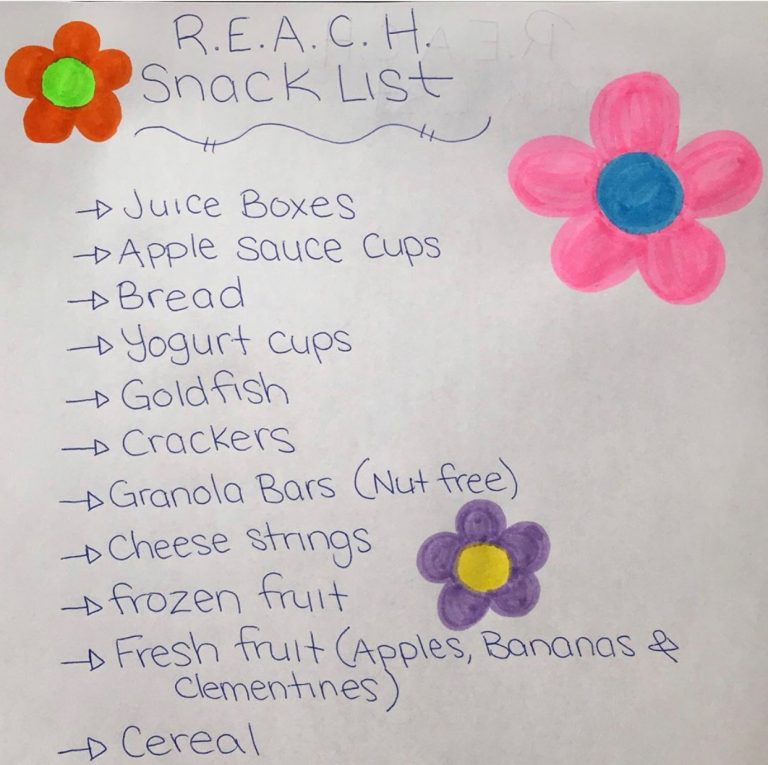 R.E.A.C.H.
Snack List
Juice Boxes
Apple sauce cups
Bread
Yogurt cups
Goldfish
Crackers
Granola Bars (Nut free)
Cheese strings
frozen fruit
Fresh fruit (Apples, Bananas &
Clementines)
Cereal